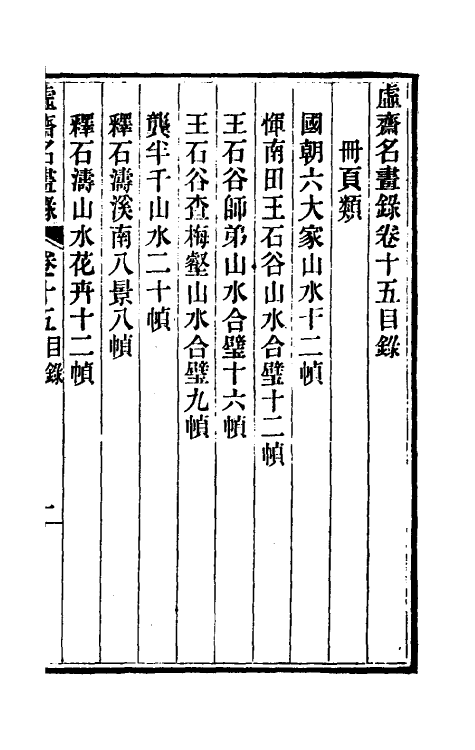 虛齋名畫錄卷十五目錄
冊頁類
國朝六大家山水十二幀
惲南田王石谷山水合璧十二幀
王石谷師弟山水合璧十六幀
王石谷查梅壑山水合璧九幀
龔半千山水二十幀
釋石濤溪南八景八幀
釋石濤山水花卉十二幀
虛齋名畫錄 卷十五目錄 一